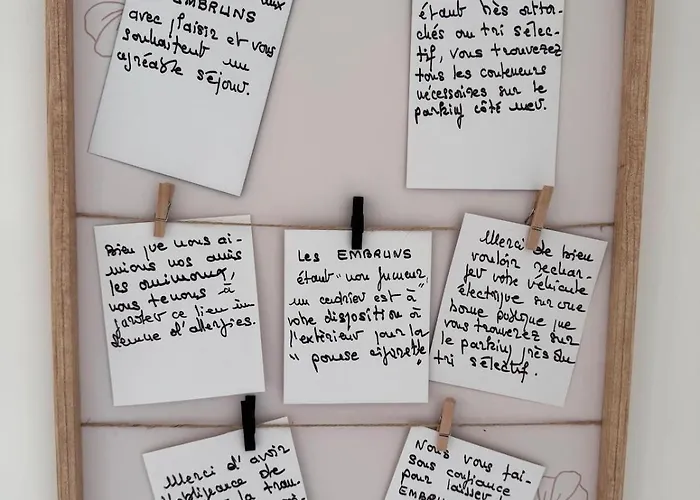 EMBRUNS
avec plaisir et vous
souhaitent un
agréable séjour.
étant très atta-
chés au tri sélec-
tif, vous trouverez
tous les conteneurs
nécessaires sur le
parking côté mer.
Bien que nous ai-
mions nos amis
les animaux,
nous tenons à
garder ce lieu in
demne d'allergies.
Les EMBRUNS
étant "non fumeur"
un cendrier est à
votre disposition à
l'extérieur pour la
" pause cigarette"
Merci de bien
vouloir rechar-
ger votre véhicule
électrique sur une
borne publique que
vous trouverez sur
le parking près du
tri sélectif.
Merci d'avoir
l'obligeance de
la
Nous vous fai-
sons confiance
pour laisser
EMBRUNS